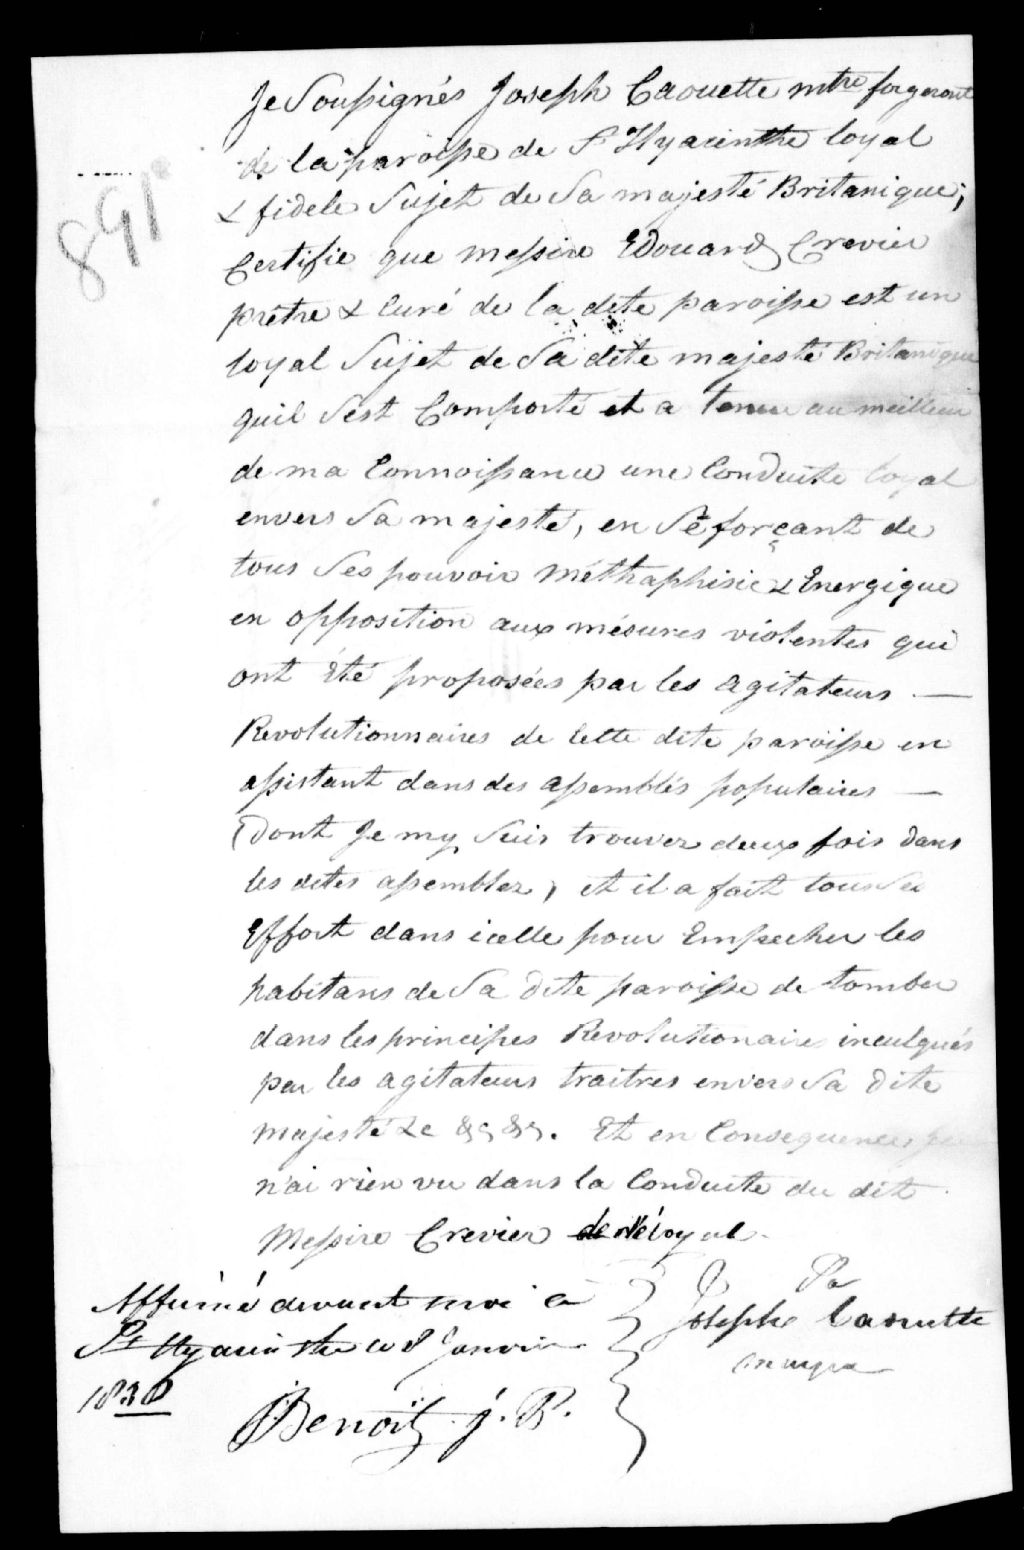 891
Je Soussignés Joseph Caouette mtre forgeront
de la paroisse de St Hyacinthe loyal
& fidele Sujet de Sa majesté Britanique;
Certifie que messire Edouard Crevier
prêtre & Curé de la dite paroisse est un
loyal Sujet de Sa dite majesté Britanique
quil s'est Comporté et a tenue au meilleur
de ma Connoissance une Conduite loyal
envers Sa majesté, en S'éforçant de
tous Ses pouvoir méthaphisic & Energique
en opposition aux mésures violentes qui
ont été proposées par les agitateurs —
Revolutionnaires de Cette dite paroisse en
assistant dans des assemblés populaires —
(Dont Je my Suis trouvez deux fois dans
les dites assemblez, et il a fait tous Ses
Effort dans icelle pour Empecher les
habitans de Sa dite paroisse de tomber
dans les principes Revolutionaires inculqués
par les agitateurs traitres envers Sa dite
majesté &c &c &c. Et en Consequence je
n'ai rien vu dans la Conduite du dit
Messire Crevier de déloyal.
Affirmé devant moi a
St Hyacinthe le 8 Janvier
1838
Benoit J. P.
Sa
Joseph Caouette
marque